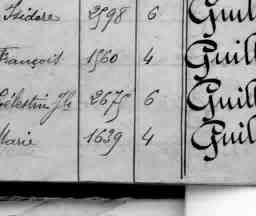 Isidore 2598 6 Guill
François 1560 4 Guill
Célestin fls 2675 6 Guill
Marie 1639 4 Guill